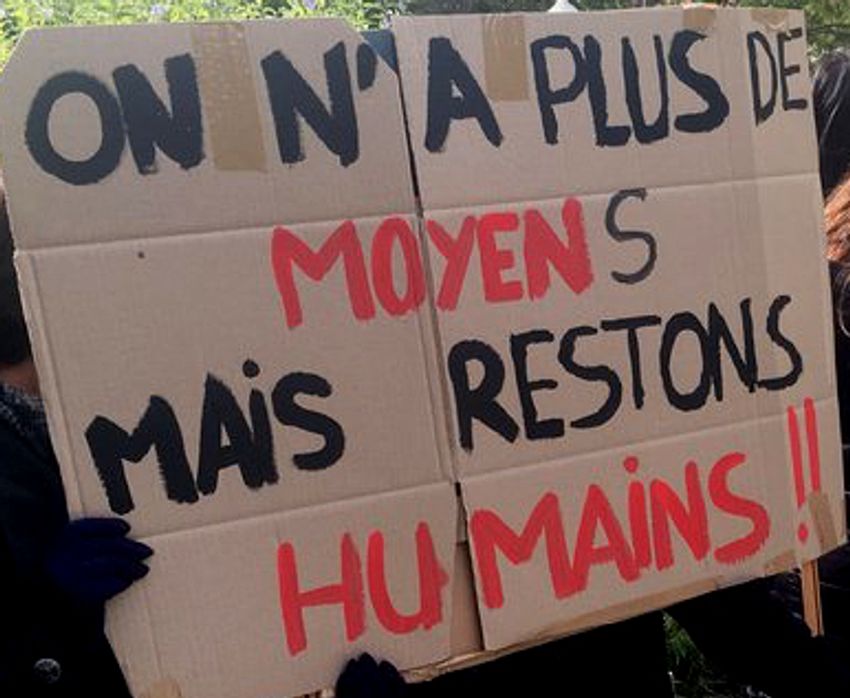 ON N'A PLUS DE
MOYENS
MAiS RESTONS
HUMAiNS !!